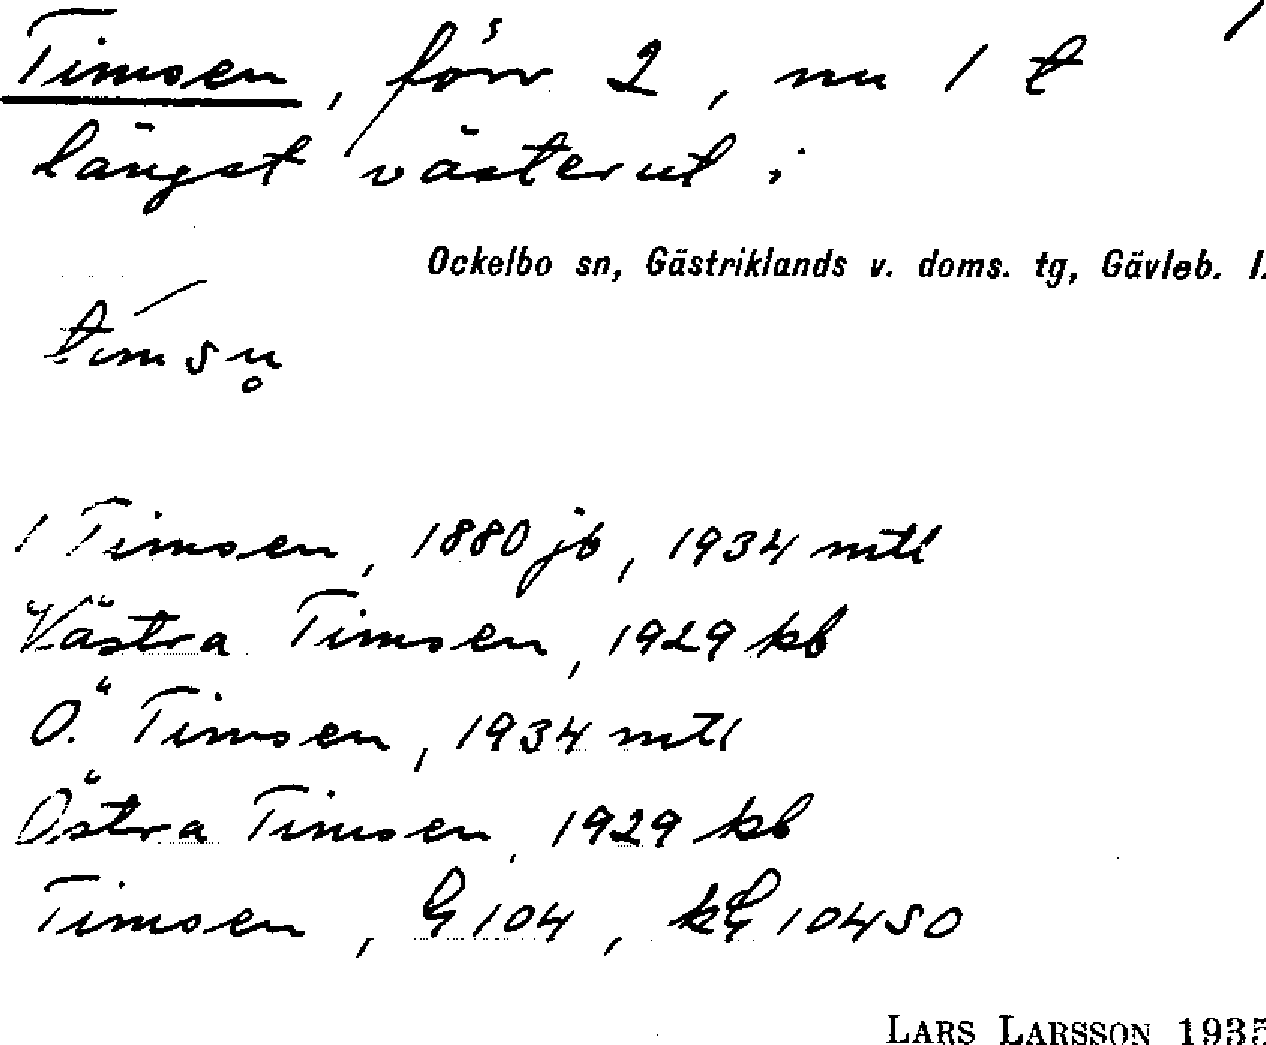 Timsen, förr 2, nu 1 t
längst västerut i
Ockelbo sn, Gästriklands v. doms. tg, Gävleb. l.
timsn̥
1 Timsen, 1880 jb, 1934 mtl
Västra Timsen, 1929 kb
Ö. Timsen, 1934 mtl
Östra Timsen, 1929 kb
Timsen, G 104, kG 10450
LARS LARSSON 1935